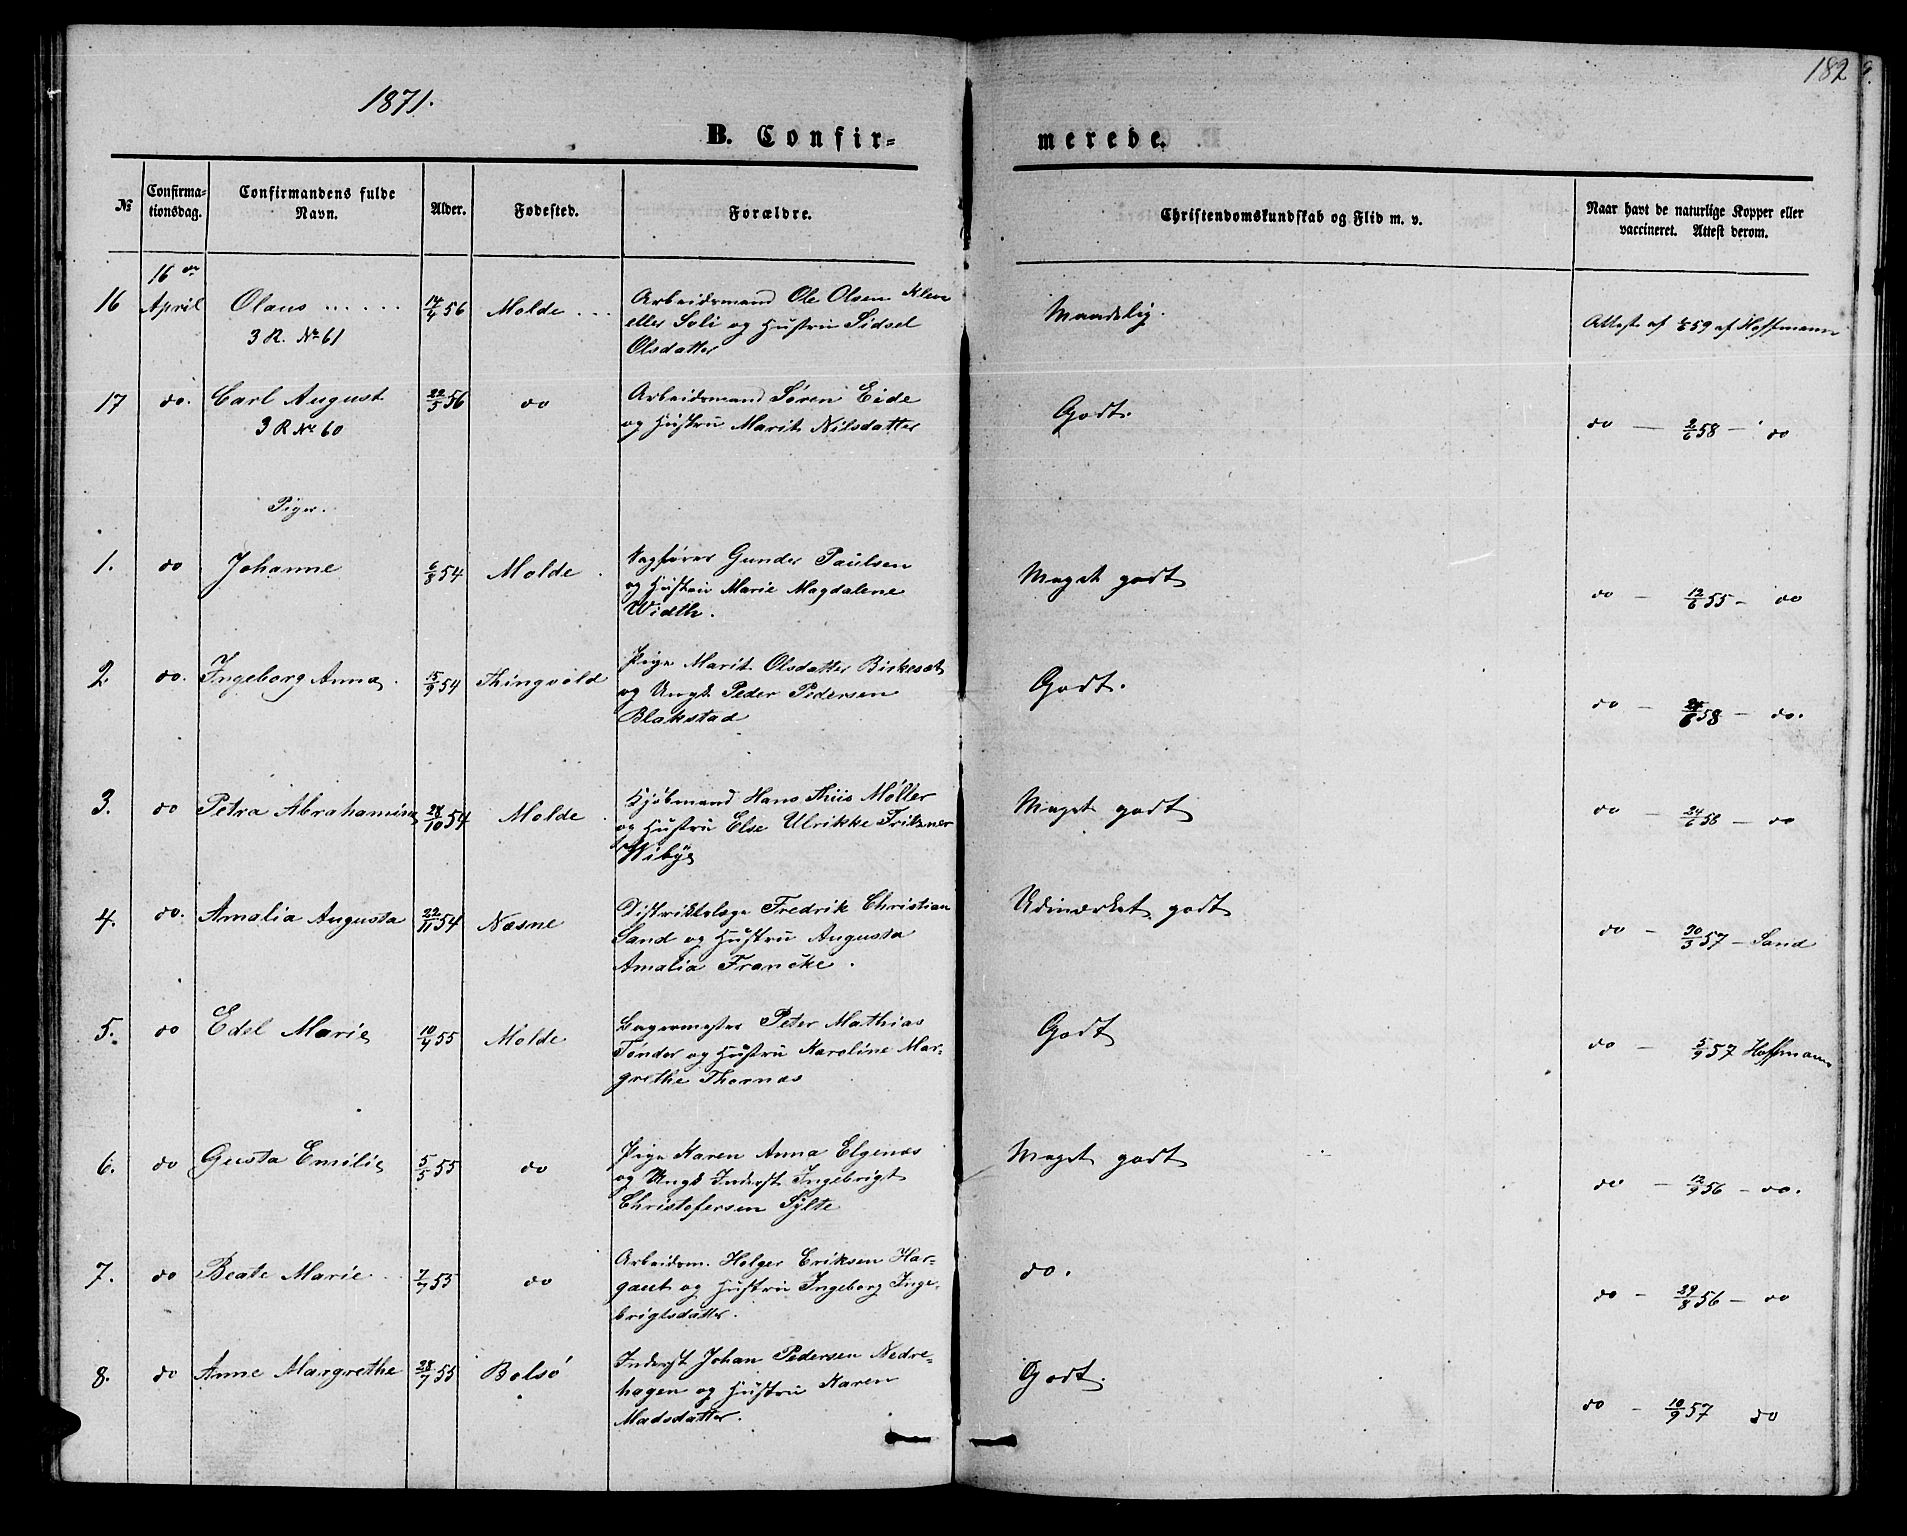 1871.
182
B. Confir=
merede.
№
Confirma=
tionsdag.
Confirmandens fulde
Navn.
Alder.
Fødested.
Forældre.
Christendomskundskab og Flid m. v.
Naar havt de naturlige Kopper eller
vaccineret. Attest derom.
16 April Olaus 14/4 56 Molde
3 R. No 61
Arbeidsmand Ole Olsen Kleve
eller Soli og Hustru Sidsel
Olsdatter
Maadelig.
Attest af 59 af Hoffmann
17 do. Carl August 22/5 56 do
3 R No 60
Arbeidsmand Søren Eide
og Hustru Marit Nilsdatter
Godt.
do — 2/6 58 — do
Piger.
1. do Johanne 6/8 54 Molde
Sagfører Gunder Paulsen
og Hustru Marie Magdalene
Width.
Meget godt
do — 12/6 55 — do
2. do. Ingeborg Anna 15/9 54 Thingvold
Pige Marit Olsdatter Birkesæt
og Ungk. Peder Pedersen
Blakstad
Godt.
do — 24/6 58 — do.
3. do Petra Abrahamina 28/10 54 Molde
Kjøbmand Hans Thiis Møller
og Hustru Else Ulrikke Friksner
Wibye
Meget godt
do — 24/6 58 — do
4. do. Amalia Augusta 22/11 54 Næsne
Distriktslæge Fredrik Christian
Sand og Hustru Augusta
Amalia Francke.
Udmærket godt
do — 30/3 57 — Sand
5. do Edel Marie 10/4 55 Molde
Bagermester Peter Mathias
Tønder og Hustru Karoline Mar-
grethe Thornæs
Godt
do — 5/9 57 Hoffmann
6. do Gusta Emilie 5/5 55 do
Pige Karen Anna Elgenæs
og Ungk. Inderst Ingebrigt
Christofersen Sylte
Meget godt
do — 12/9 56 — do.
7. do Beate Marie 7/7 55 do
Arbeidsm. Holger Eriksen Har-
gaut og Hustru Ingeborg Inge-
brigtsdatter.
do.
do — 29/8 56 — do
8. do Anne Margrethe 28/7 55 Bolsø
Inderst Johan Pedersen Nedre-
hagen og Hustru Karen
Madsdatter.
Godt.
do — 10/9 57 do